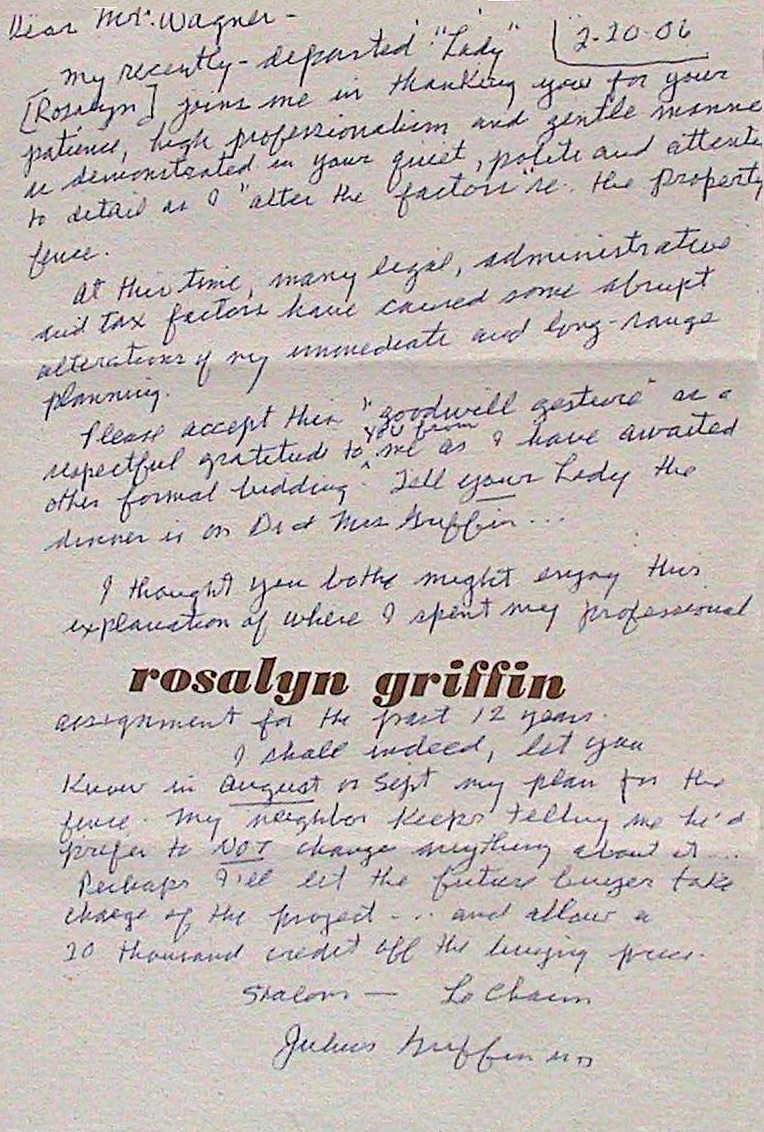 Dear Mr. Wagner -
2-20-06
My recently-departed "Lady"
[Rosalyn] joins me in thanking you for your
patience, high professionalism and gentle manner
as demonstrated in your quiet, polite and attent
to detail as I "alter the factors" re. the property
fence.
At this time, many legal, administrative
and tax factors have caused some abrupt
alterations of my immediate and long-range
planning.
Please accept this "goodwill gesture" as a
respectful gratitude to you from me as I have awaited
other formal bidding. Tell your Lady the
dinner is on Dr & Mrs Griffin...
I thought you bothe might enjoy this
explanation of where I spent my professional
rosalyn griffin
assignment for the past 12 years.
I shall indeed, let you
know in August or Sept my plan for the
fence. My neighbor keeps telling me he'd
prefer to NOT change anything about it...
Perhaps I'll let the future buyer take
charge of the project... and allow a
20 thousand credit off the buying price.
Shalom — Le Chaim
Julius Griffin MD